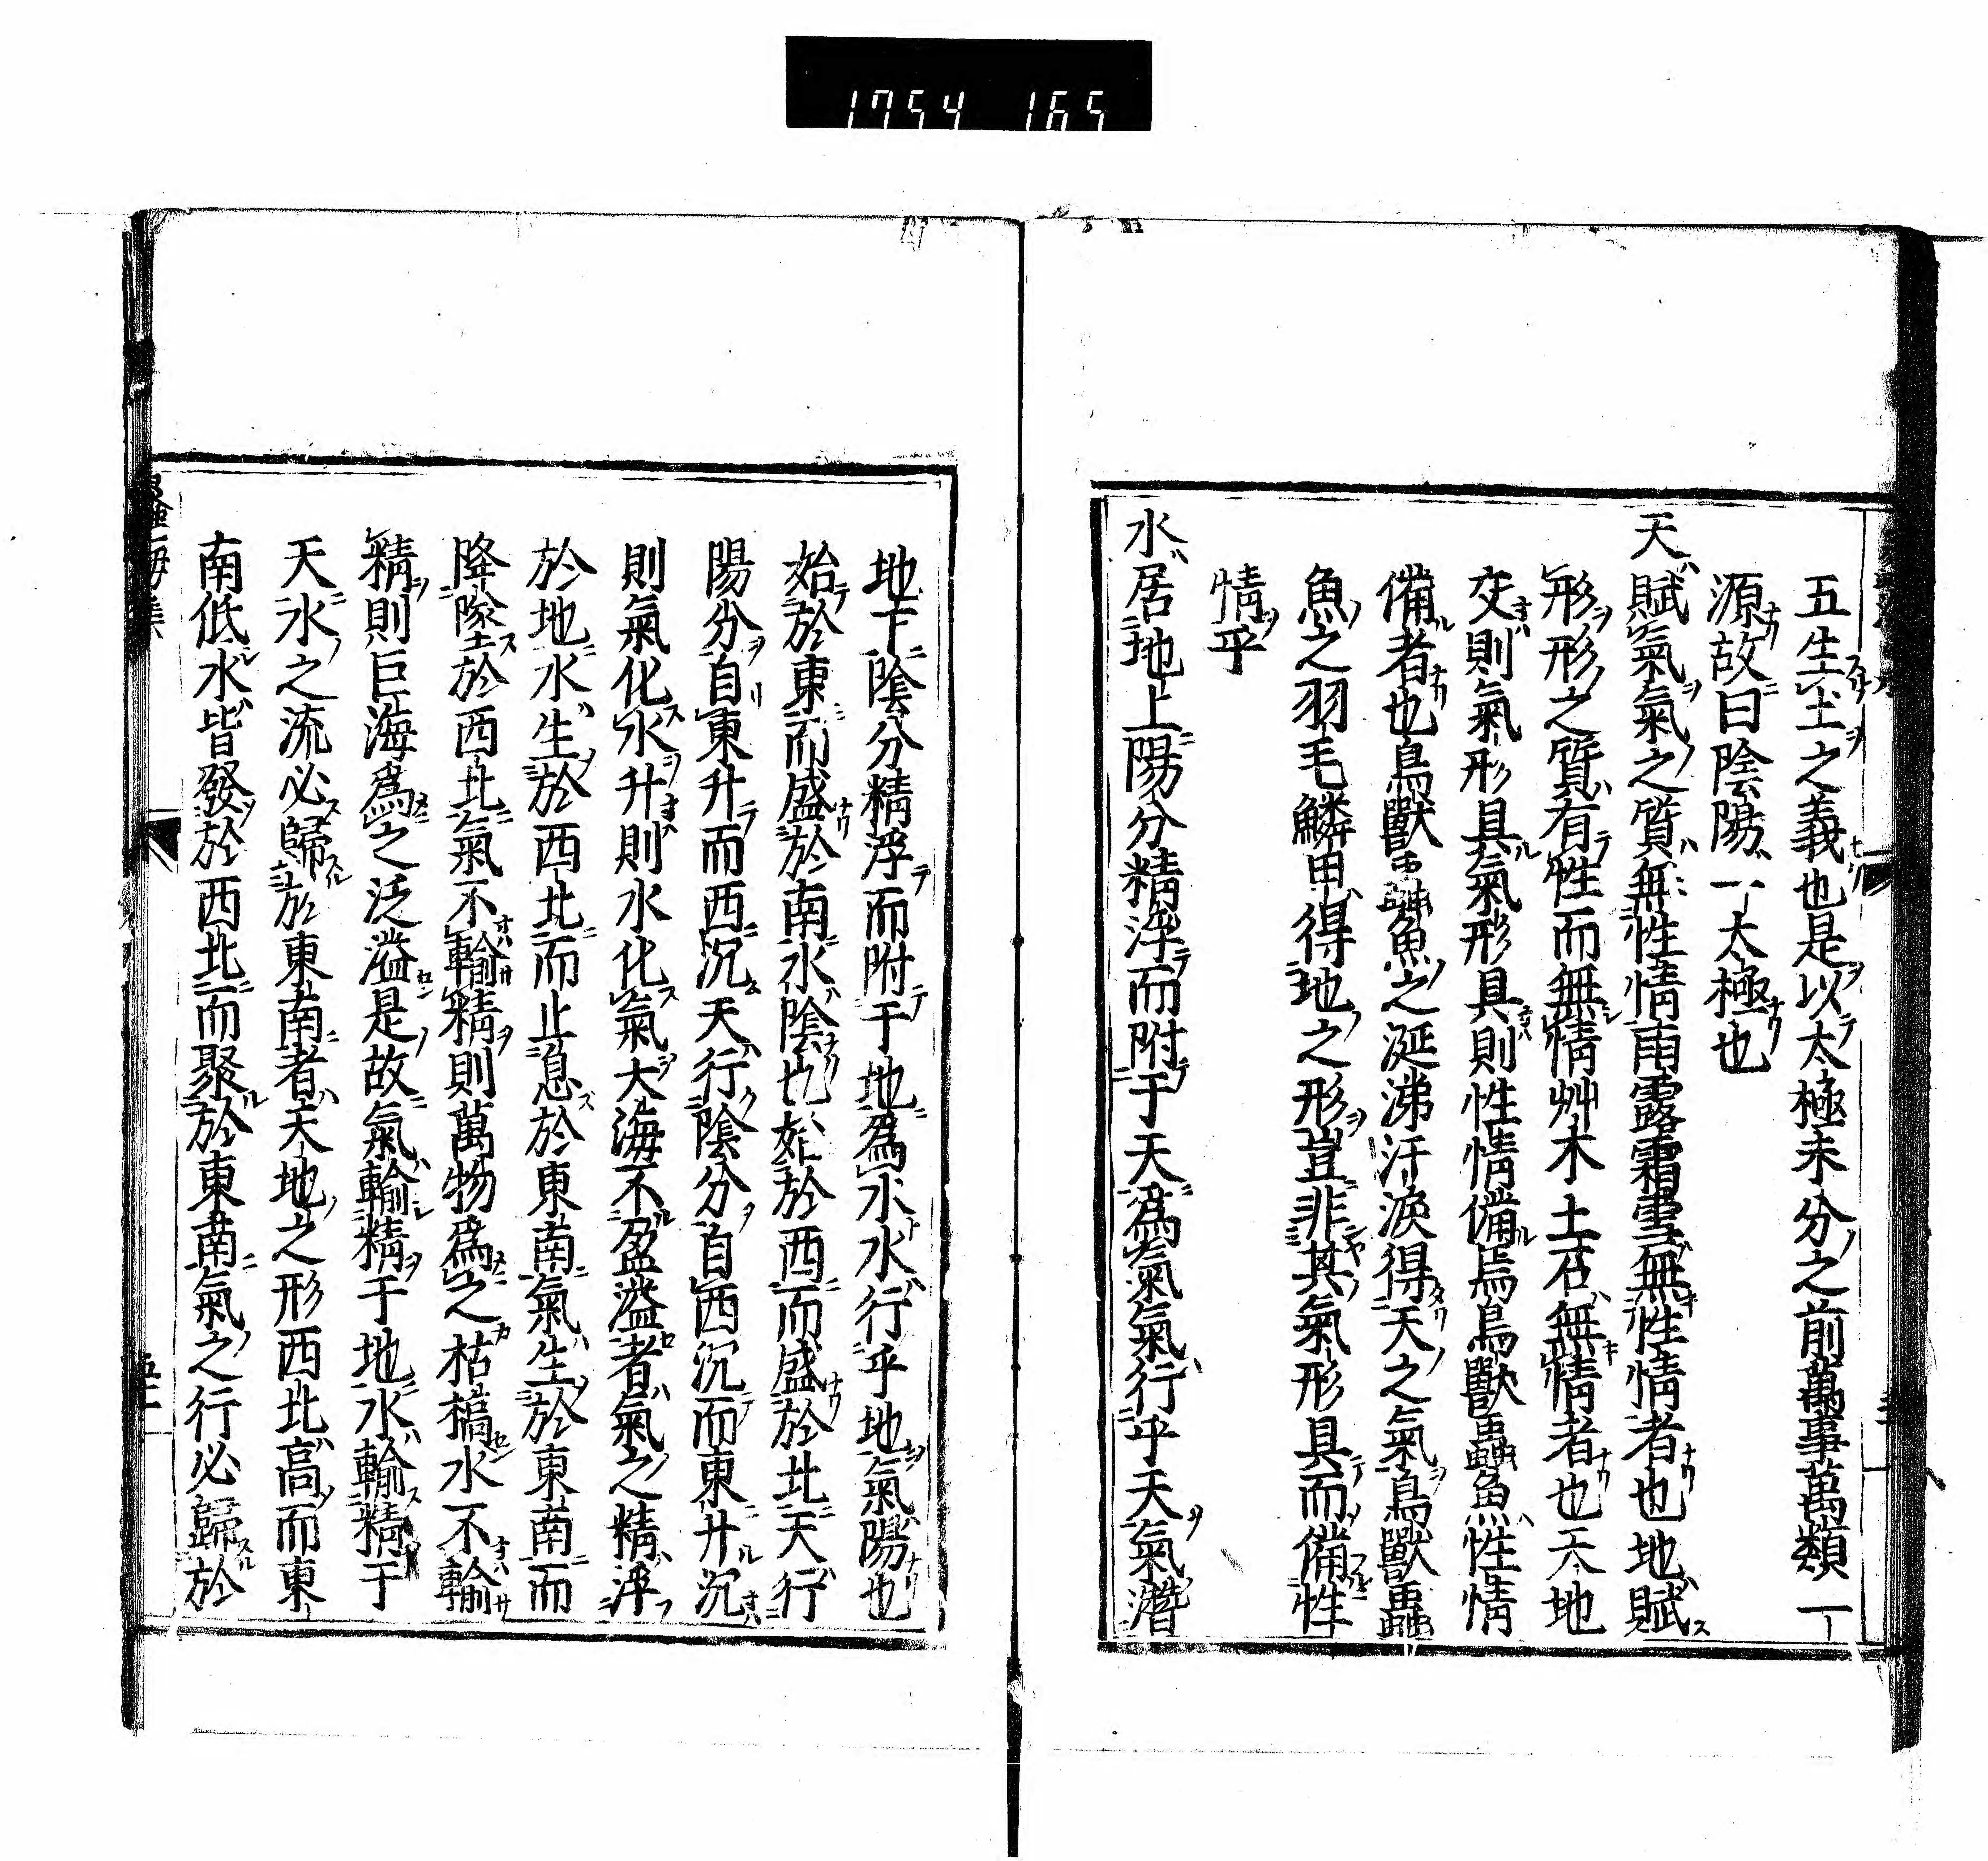 1754 165
五生土之義也是以太極未分之前萬事萬類一
源故曰陰陽一太極也
天賦氣氣之質無性情雨露霜雪無性情者也地賦
形形之質有性而無情艸木土石無情者也天地
交則氣形具氣形具則性情備焉鳥獸蟲魚性情
備者也鳥獸蟲魚之涎涕汗淚得天之氣鳥獸蟲
魚之羽毛鱗甲得地之形豈非其氣形具而備性
情乎
水居地上陽分精浮而附于天爲氣氣行乎天氣潛
地下陰分精浮而附于地爲水水行乎地氣陽也
始於東而盛於南水陰也始於西而盛於北天行
陽分自東升而西沉天行陰分自西沉而東升沉
則氣化水升則水化氣大海不盈溢者氣之精浮
於地水生於西北而止息於東南氣生於東南而
降墜於西北氣不輸精則萬物爲之枯槁水不輸
精則巨海爲之泛溢是故氣輸精于地水輸精于
天水之流必歸於東南者天地之形西北高而東
南低水皆發於西北而聚於東南氣之行必歸於